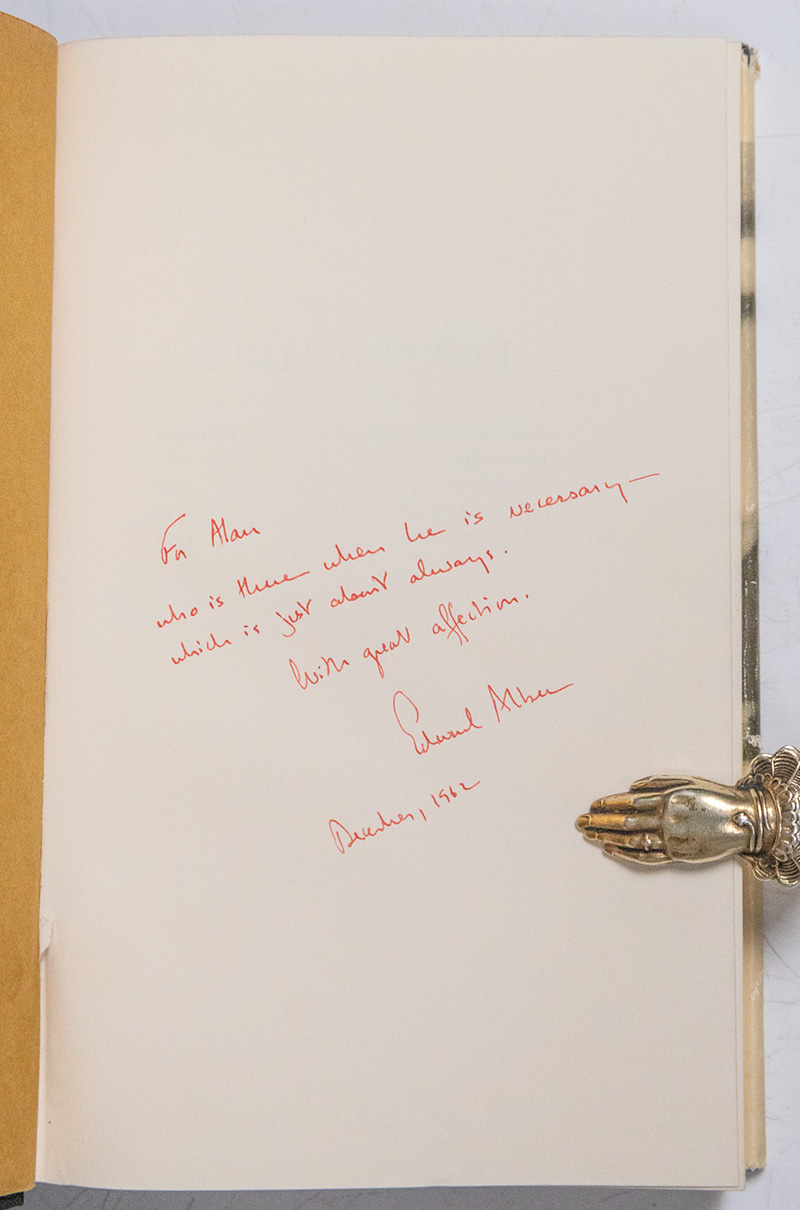 For Alan
who is there when he is necessary—
which is just about always.
With great affection.
Edward Albee
December, 1962